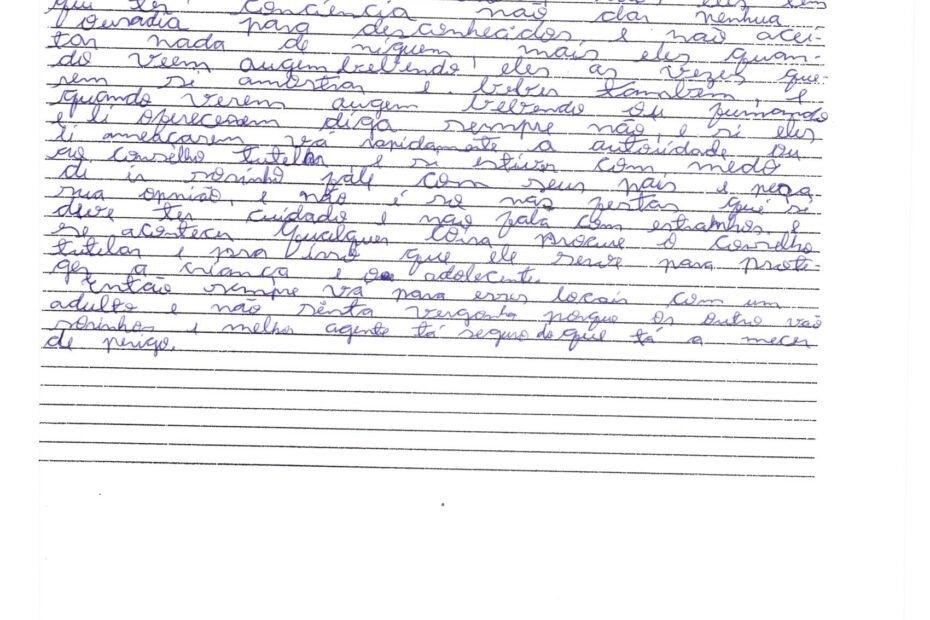 que ter conciência não dar nenhua
ousadia para desconhecidos, e não acei-
tar nada de niguem, mais eles quan-
do veem augem bebendo, eles as vezes que-
rem si amostrar e beber também, e
quando verem augem bebendo ou fumando
e li oferecerem diga sempre não, e si eles
li ameaçarem vá rapidamente a autoridade ou
ao conselho tutelar e si estiver com medo
di ir sosinho fale com seus pais e peça
sua opnião, e não é so nas festas que si
deve ter cuidado e não fala com estranhos, e
se acontecer qualquer coisa procure o conselho
tutelar e pra isso que ele serve para prote-
ger a criança e o adolecente.
Então sempre vá para esses locais com um
adulto e não sênta vergonha porque os outro vão
sosinhos e melhor agente tá seguro do que tá a mecer
de perigo.